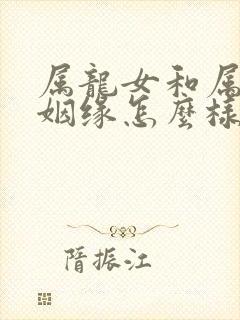 属龍女和属
姻缘怎麼樣
隋振江